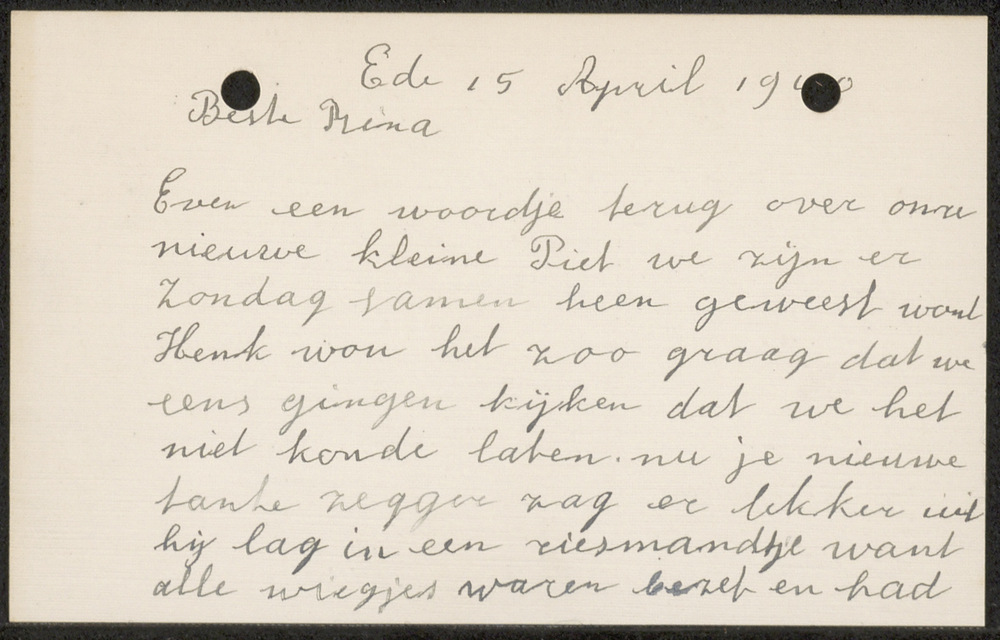 Ede 15 April 1940
Beste Rina
Even een woordje terug over onze
nieuwe kleine Piet we zijn er
Zondag samen heen geweest want
Henk wou het zoo graag dat we
eens gingen kijken dat we het
niet konde laten. nu je nieuwe
tante zegger zag er lekker uit
hij lag in een riesmandtje want
alle wiegjes waren bezet en had